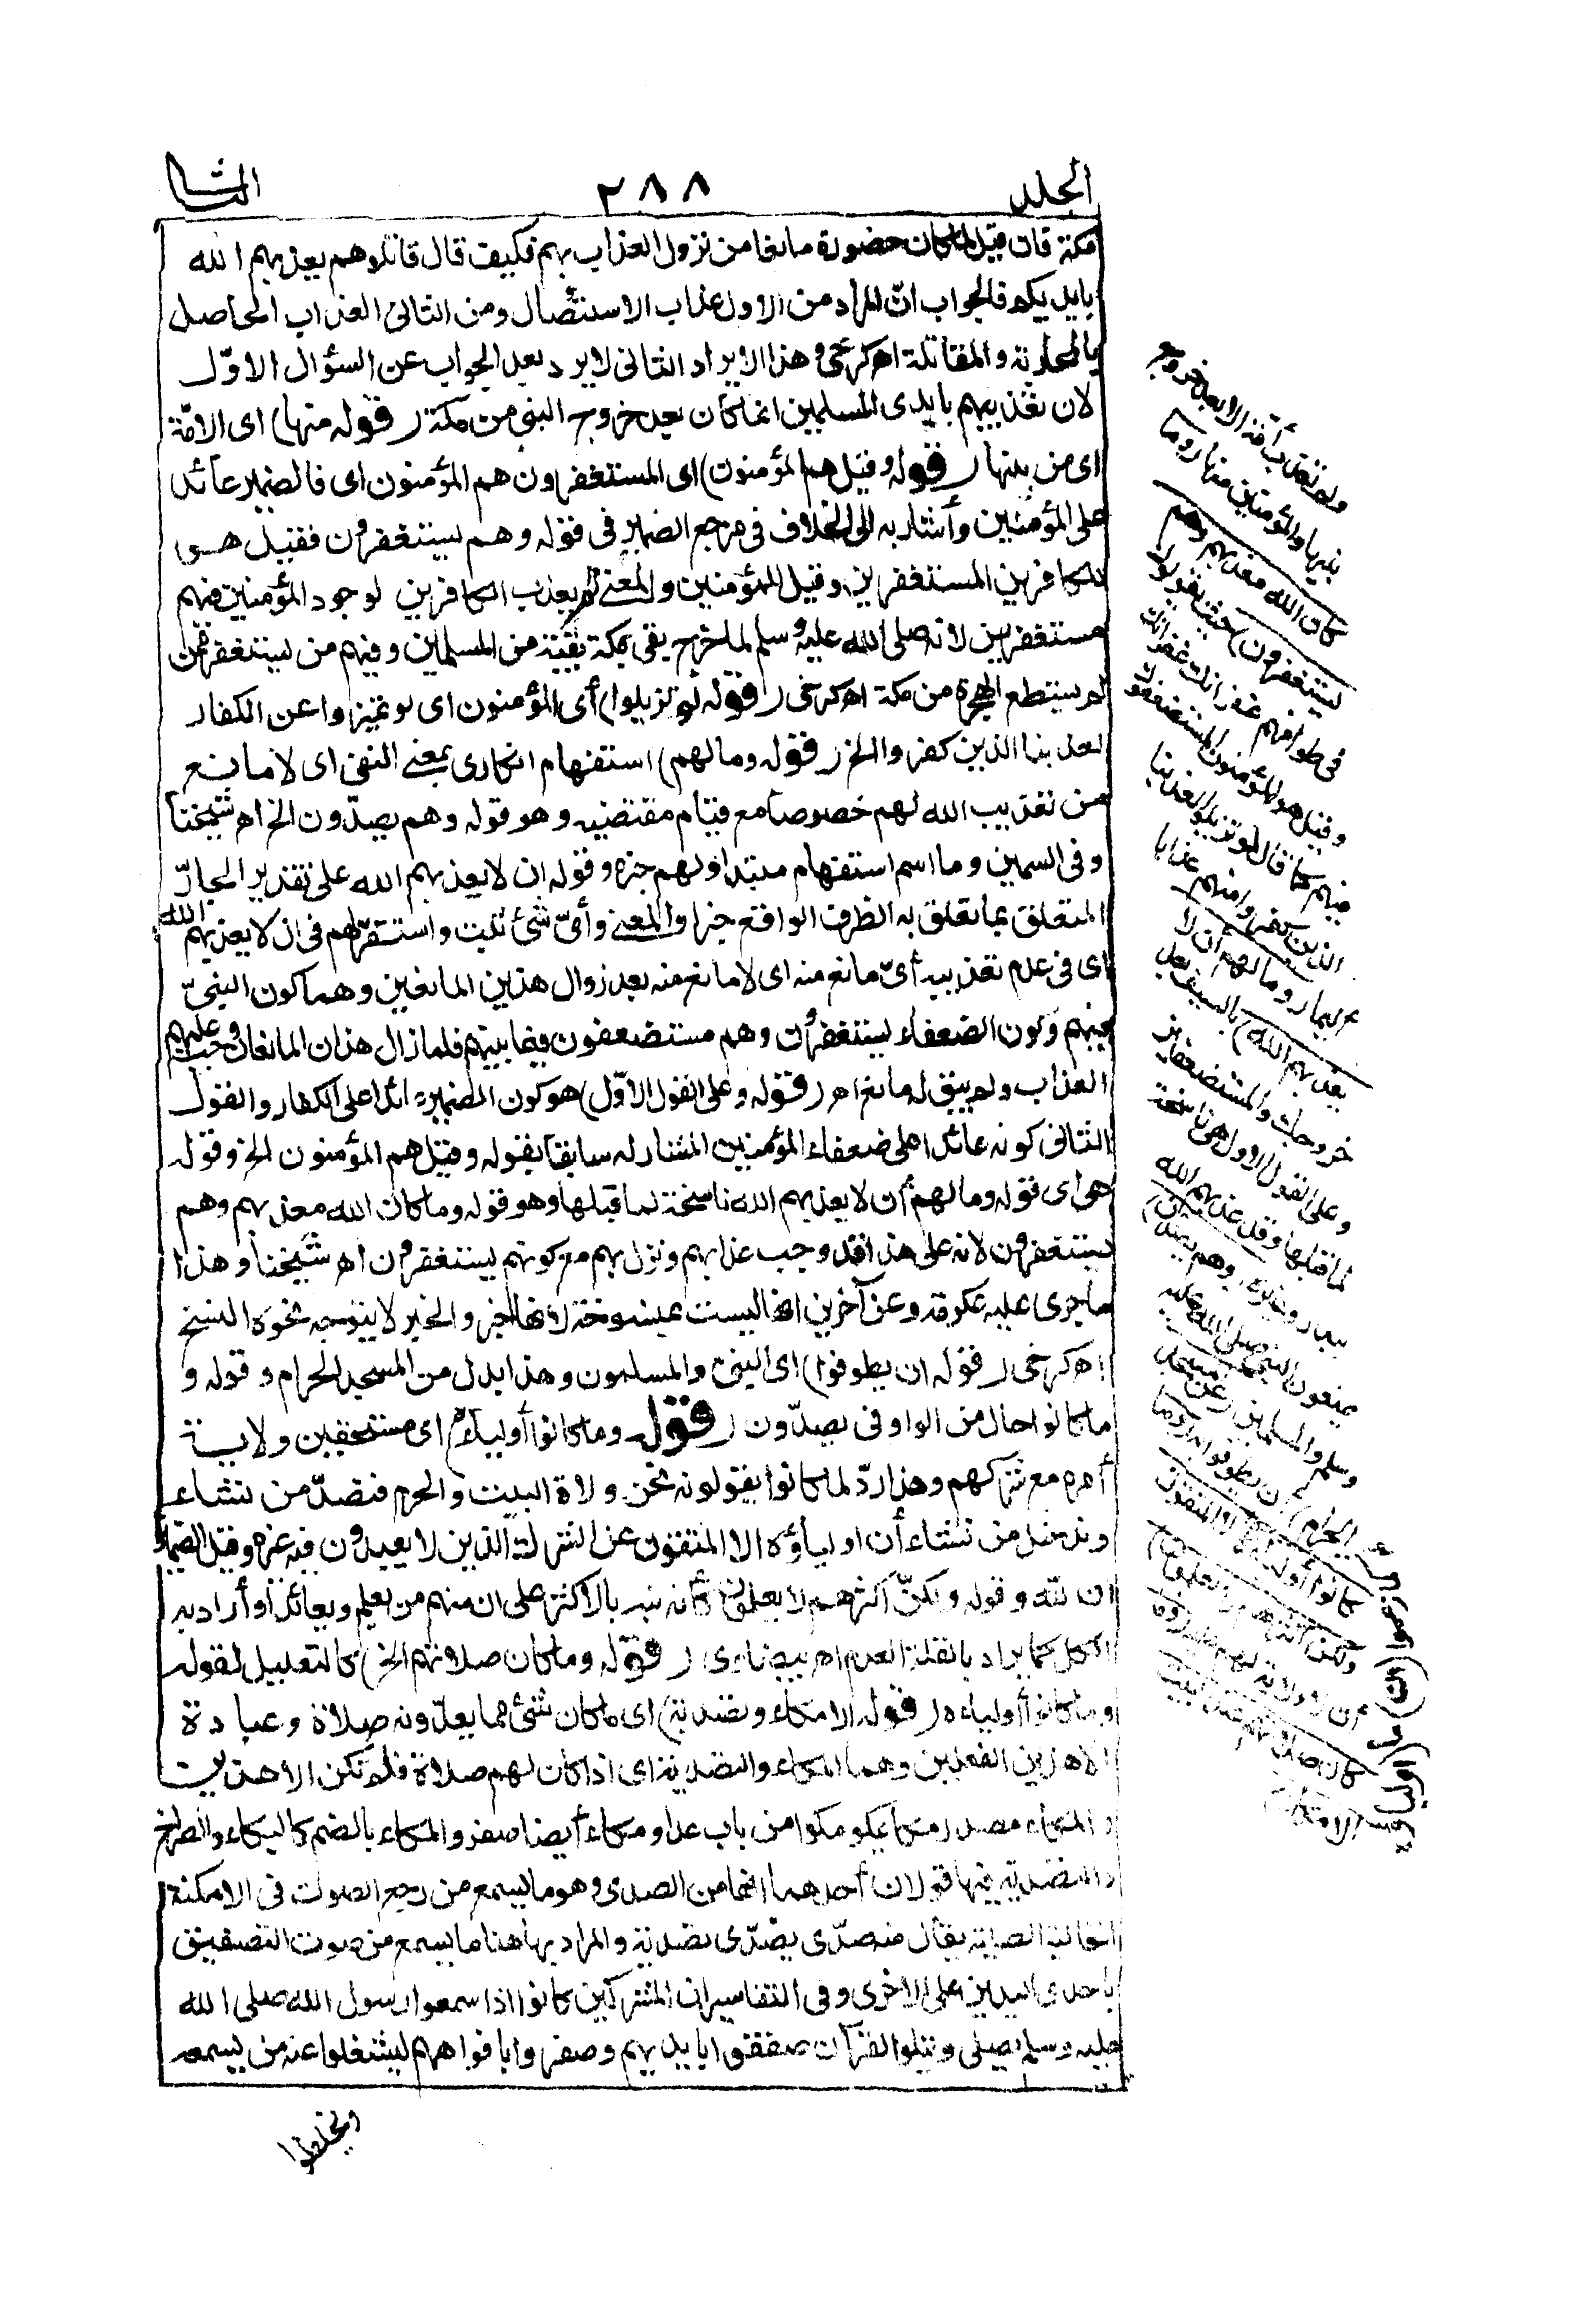 الجلد ٢٨٨ الثانى
مكة فان قيل لما كان حضوره مانعا من نزول العذاب بهم فكيف قال قاتلوهم يعذبهم الله
بايديكم فالجواب انّ المراد من الاول عذاب الاستئصال ومن الثانى العذاب الحاصل
بالمحاربة والمقاتلة اه كرخى وهذا الايراد الثانى لا يرد بعد الجواب عن السؤال الاوّل
لان تعذيبهم بايدى المسلمين انما كان بعد خروج النبى من مكة (قوله منها) اى الامّة
اى من بينها (قوله وقيل هم المؤمنون) اى المستغفرون هم المؤمنون اى فالضمير عائد
على المؤمنين وأشار به الى الخلاف فى مرجع الضمير فى قوله وهم يستغفرون فقيل هو
للكافرين المستغفرين وقيل للمؤمنين والمعنى لم يعذب الكافرين لوجود المؤمنين فيهم
مستغفرين لانه صلى الله عليه وسلم لما خرج بقى بمكة بقية من المسلمين وفيهم من يستغفر ممن
لم يستطع الهجرة من مكة اه كرخى (قوله لو تزيلوا) أى المؤمنون اى لو تميزوا عن الكفار
لعذبنا الذين كفروا الخ (قوله وما لهم) استفهام انكارى بمعنى النفى اى لا مانع
من تعذيب الله لهم خصوصا مع قيام مقتضيه وهو قوله وهم يصدّون الخ اه شيخنا
وفى السمين وما اسم استفهام مبتدا ولهم خبره وقوله ان لا يعذبهم الله على تقدير الجارّ
المتعلق بما تعلق به الظرف الواقع خبرا والمعنى وأىّ شئ ثبت واستقرّ لهم فى ان لا يعذبهم الله
اى فى عدم تعذيبه أىّ مانع منه اى لا مانع منه بعد زوال هذين المانعين وهما كون النبىّ
فيهم وكون الضعفاء يستغفرون وهم مستضعفون فيما بينهم فلما زال هذان المانعان وجب عليهم
العذاب ولم يبق له مانع اه (قوله وعلى القول الاوّل) هو كون الضمير عائدا على الكفار والقول
الثانى كونه عائدا على ضعفاء المؤمنين المشار له سابقا بقوله وقيل هم المؤمنون الخ وقوله
هى اى قوله وما لهم أن لا يعذبهم الله ناسخة لما قبلها وهو قوله وما كان الله معذبهم وهم
يستغفرون لانه على هذا قد وجب عذابهم ونزل بهم مع كونهم يستغفرون اه شيخنا وهذا
ما جرى عليه عكرمة وعن آخرين انها ليست بمنسوخة لانها خبر والخبر لا يتوجه نحوه النسخ
اه كرخى (قوله ان يطوفوا) اى النبىّ والمسلمون وهذا بدل من المسجد الحرام وقوله و
ما كانوا حال من الواو فى يصدّون (قوله وما كانوا أولياءه) اى مستحقين ولاية
أمره مع شركهم وهذا ردّ لما كانوا يقولونه نحن ولاة البيت والحرم فنصدّ من نشاء
وندخل من نشاء أن اولياؤه الا المتقون عن الشرك الذين لا يعبدون فيه غيره وقيل الضميران
لله وقوله ولكنّ أكثرهم لا يعلمون كأنه نبه بالاكثر على ان منهم من يعلم ويعاند أو أراد به
الكل كما يراد بالقلة العدم اه بيضاوى (قوله وما كان صلاتهم الخ) كالتعليل لقوله
وما كانوا أولياءه (قوله الا مكاء وتصدية) اى ما كان شئ مما يعدّونه صلاة وعبادة
الا هذين الفعلين وهما المكاء والتصدية اى اذا كان لهم صلاة فلم تكن الا هذين
والمكاء مصدر مكا يمكو مكوا من باب عدا ومكاء أيضا صفر والمكاء بالضم كالبكاء والصراخ
والتصدية فيها قولان أحدهما انها من الصدى وهو ما يسمع من رجع الصوت فى الامكنة
الخالية الصلبة يقال منه صدّى يصدّى تصدية والمراد بها هنا ما يسمع من صوت التصفيق
باحدى اليدين على الاخرى وفى التفاسير ان المشركين كانوا اذا سمعوا رسول الله صلى الله
عليه وسلم يصلى ويتلو القرآن صفقوا بايديهم وصفروا بافواههم ليشغلوا عنه من يسمعه
ويخلطوا
ولم تعذب أمّة الا بعد خروج
نبيها والمؤمنين منها (وما
كان الله معذبهم وهم
يستغفرون) حيث يقولون
فى طوافهم غفرانك غفرانك
وقيل هم المؤمنون المستضعفون
فيهم كما قال لو تزيلوا لعذبنا
الذين كفروا منهم عذابا
أليما (وما لهم أن لا
يعذبهم الله) بالسيف بعد
خروجك والمستضعفين
وعلى القول الاول هى ناسخة
لما قبلها وقد عذبهم الله
ببدر وغيره (وهم يصدون)
يمنعون النبى صلى الله عليه
وسلم والمسلمين (عن المسجد
الحرام) أن يطوفوا به (وما
كانوا أولياءه
ان) ما (أولياؤه
الا المتقون
ولكن أكثرهم لا يعلمون)
أن لا ولاية لهم عليه (وما
كان صلاتهم عند البيت
الا مكاء)